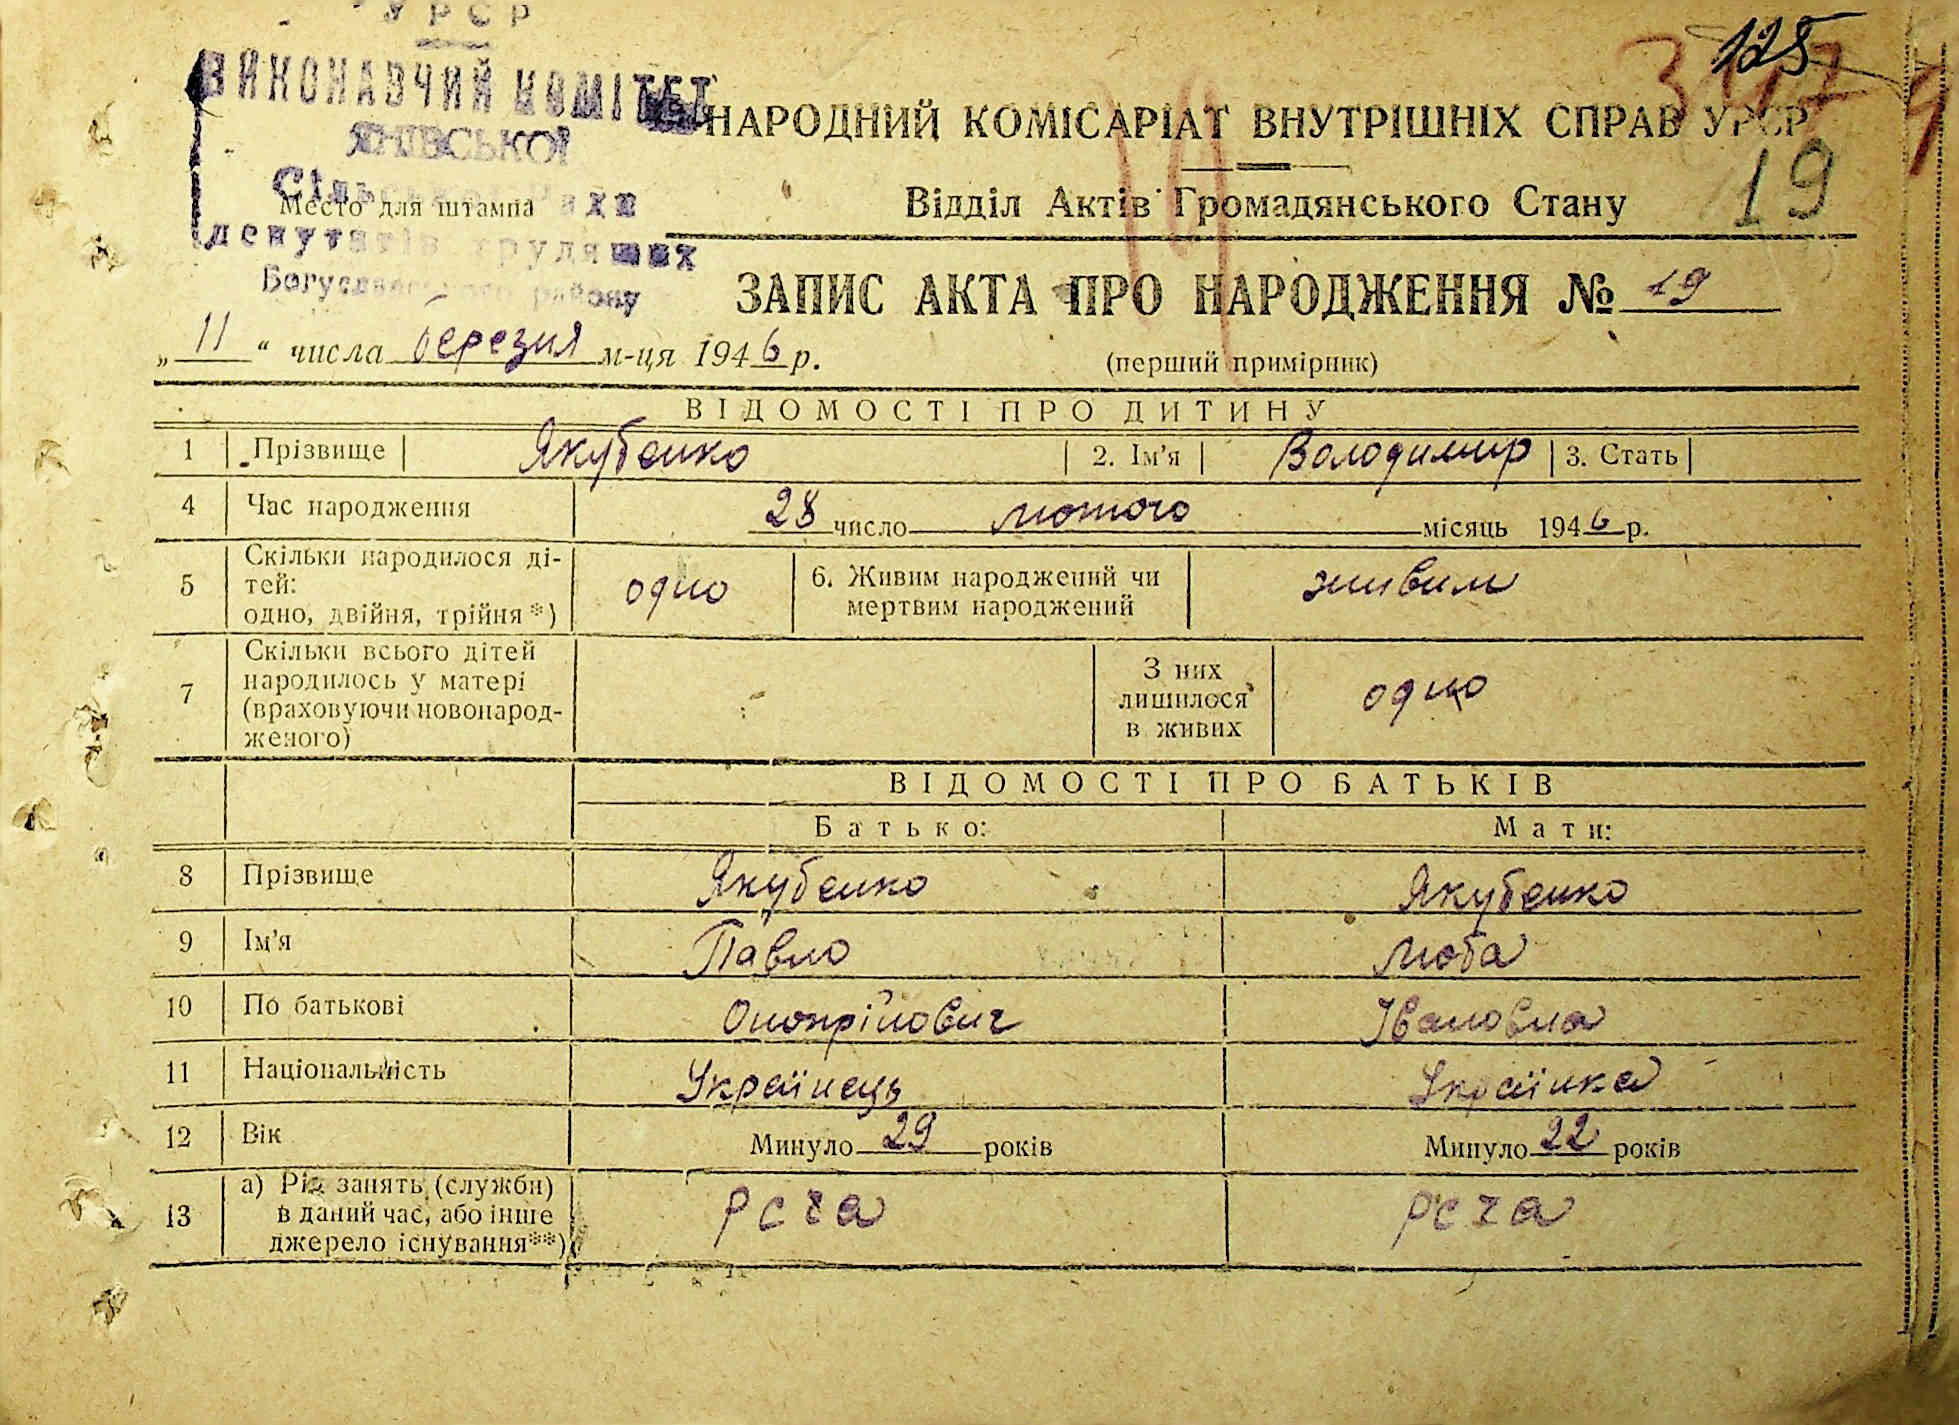 УРСР
ВИКОНАВЧИЙ КОМІТЕТ
Сільської Ради
депутатів трудящих
Богуславського району
Место для штампа
125
19
НАРОДНИЙ КОМІСАРІАТ ВНУТРІШНІХ СПРАВ УРСР
Відділ Актів Громадянського Стану
ЗАПИС АКТА ПРО НАРОДЖЕННЯ № 19
„ 11 “ числа березня м-ця 1946 р.
(перший примірник)
ВІДОМОСТІ ПРО ДИТИНУ
1 Прізвище Якубенко 2. Ім’я Володимир 3. Стать
4 Час народження 28 число лютого місяць 1946 р.
5 Скільки народилося ді-
тей:
одно, двійня, трійня*) одно
6. Живим народжений чи
мертвим народжений живим
7 Скільки всього дітей
народилось у матері
(враховуючи новонарод-
женого)
З них
лишилося
в живих одно
ВІДОМОСТІ ПРО БАТЬКІВ
Батько: Мати:
8 Прізвище Якубенко Якубенко
9 Ім’я Павло Люба
10 По батькові Онопрійович Івановна
11 Національність Українець Українка
12 Вік Минуло 29 років Минуло 22 років
13 а) Рід занять (служби)
в даний час, або інше
джерело існування**)